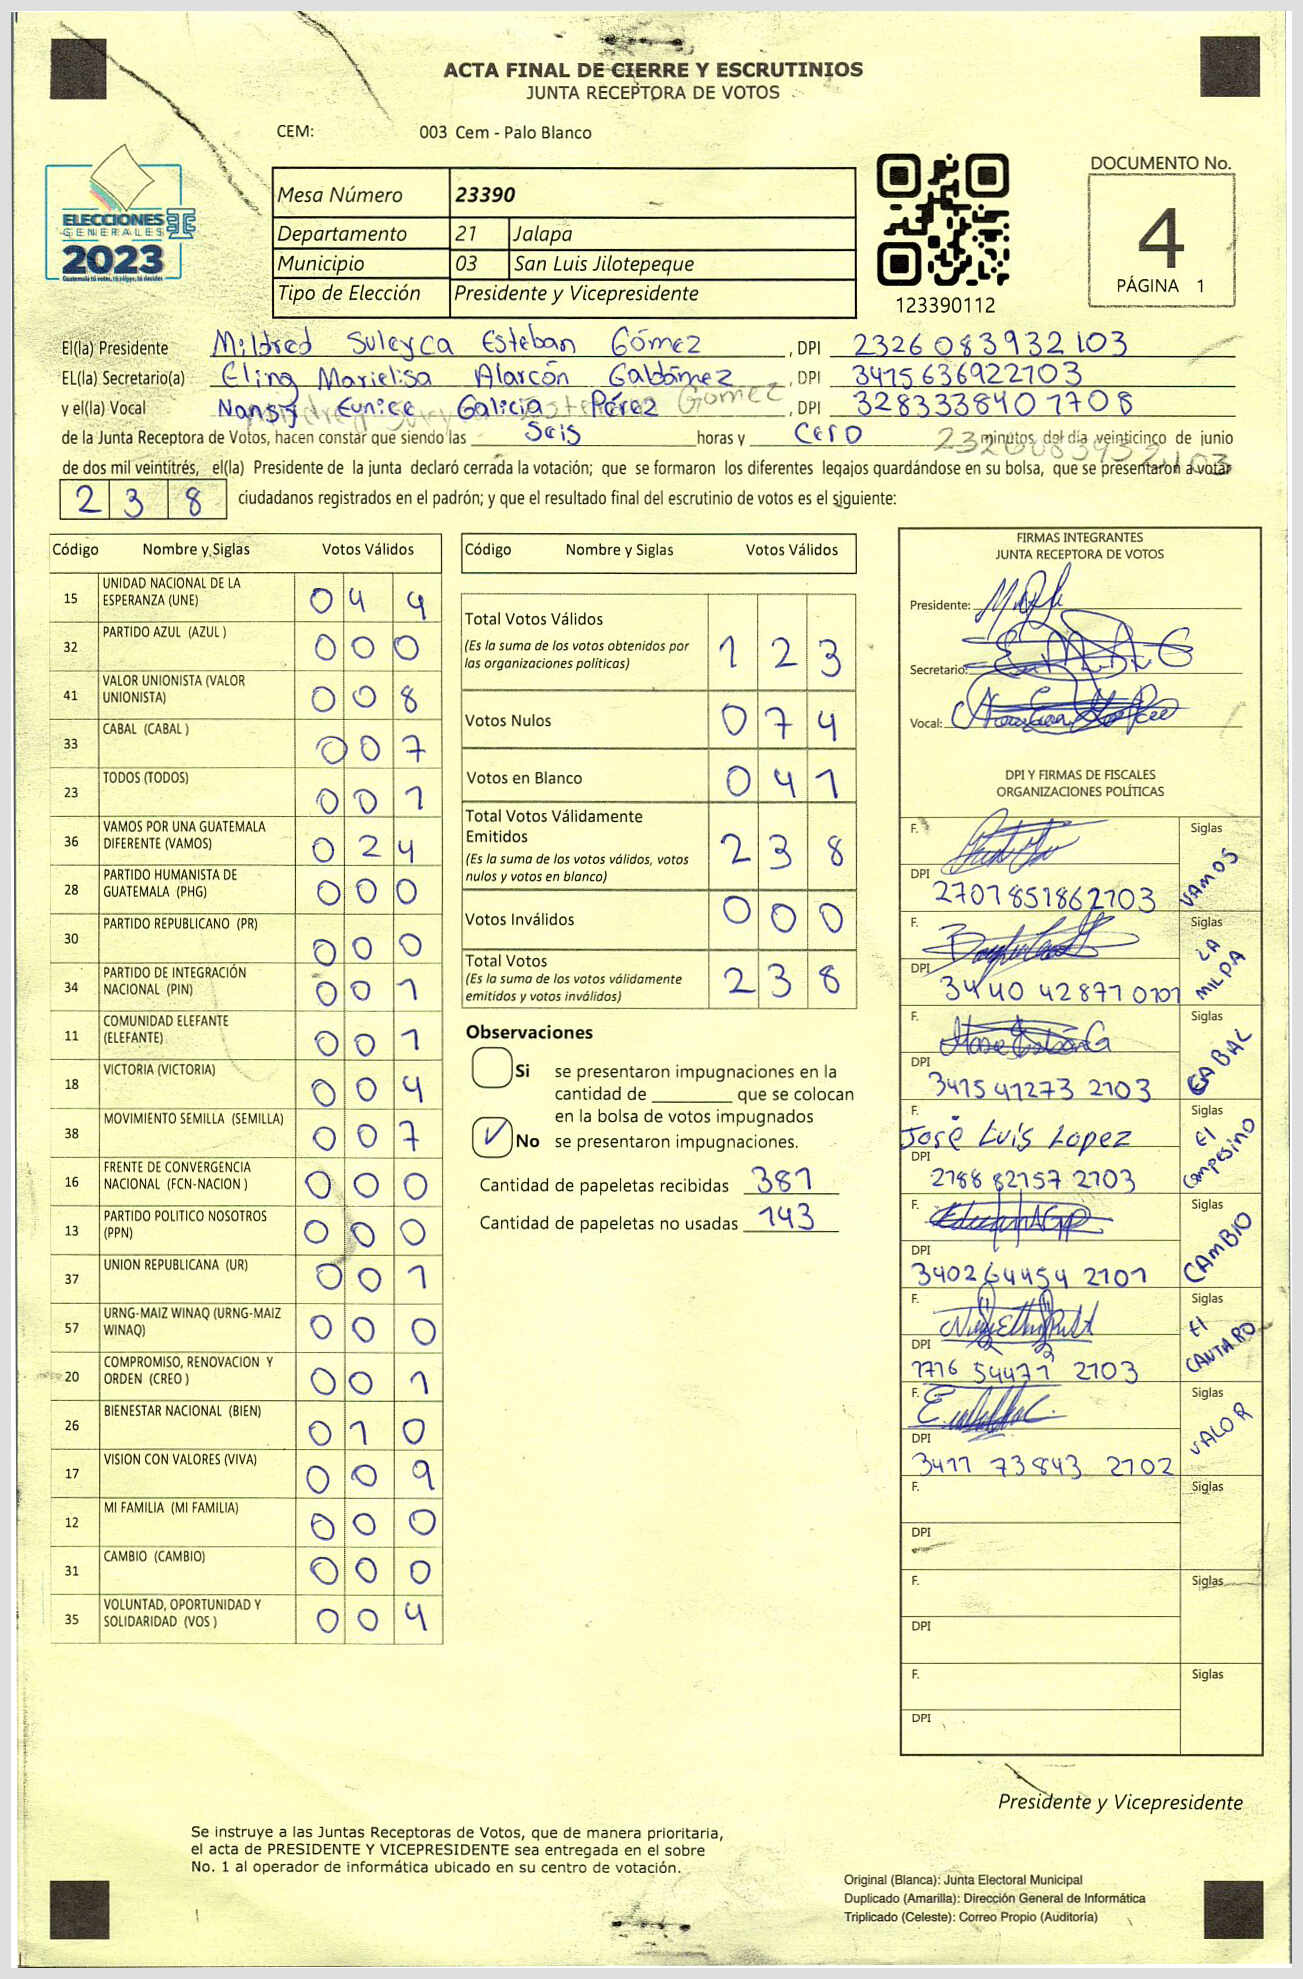 ACTA FINAL DE CIERRE Y ESCRUTINIOS
JUNTA RECEPTORA DE VOTOS
CEM: 003 Cem - Palo Blanco
ELECCIONES
GENERALES
2023
Guatemala tú votas, tú eliges, tú decides
Mesa Número 23390
Departamento 21 Jalapa
Municipio 03 San Luis Jilotepeque
Tipo de Elección Presidente y Vicepresidente
123390112
DOCUMENTO No.
4
PÁGINA 1
El(la) Presidente Mildred Suleyca Esteban Gómez , DPI 2326083932103
EL(la) Secretario(a) Eling Marielisa Alarcón Galdámez , DPI 3415636922103
y el(la) Vocal Nansy Eunice Galicia Pérez , DPI 3283338401708
de la Junta Receptora de Votos, hacen constar que siendo las Seis horas y Cero minutos del día veinticinco de junio
de dos mil veintitrés, el(la) Presidente de la junta declaró cerrada la votación; que se formaron los diferentes legajos quardándose en su bolsa, que se presentaron a votar
238 ciudadanos registrados en el padrón; y que el resultado final del escrutinio de votos es el siguiente:
Código Nombre y Siglas Votos Válidos
15 UNIDAD NACIONAL DE LA ESPERANZA (UNE) 044
32 PARTIDO AZUL (AZUL ) 000
41 VALOR UNIONISTA (VALOR UNIONISTA) 008
33 CABAL (CABAL ) 007
23 TODOS (TODOS) 001
36 VAMOS POR UNA GUATEMALA DIFERENTE (VAMOS) 024
28 PARTIDO HUMANISTA DE GUATEMALA (PHG) 000
30 PARTIDO REPUBLICANO (PR) 000
34 PARTIDO DE INTEGRACIÓN NACIONAL (PIN) 001
11 COMUNIDAD ELEFANTE (ELEFANTE) 001
18 VICTORIA (VICTORIA) 004
38 MOVIMIENTO SEMILLA (SEMILLA) 007
16 FRENTE DE CONVERGENCIA NACIONAL (FCN-NACION ) 000
13 PARTIDO POLITICO NOSOTROS (PPN) 000
37 UNION REPUBLICANA (UR) 001
57 URNG-MAIZ WINAQ (URNG-MAIZ WINAQ) 000
20 COMPROMISO, RENOVACION Y ORDEN (CREO ) 001
26 BIENESTAR NACIONAL (BIEN) 010
17 VISION CON VALORES (VIVA) 009
12 MI FAMILIA (MI FAMILIA) 000
31 CAMBIO (CAMBIO) 000
35 VOLUNTAD, OPORTUNIDAD Y SOLIDARIDAD (VOS ) 004
Código Nombre y Siglas Votos Válidos
Total Votos Válidos 123
(Es la suma de los votos obtenidos por
las organizaciones políticas)
Votos Nulos 074
Votos en Blanco 041
Total Votos Válidamente
Emitidos 238
(Es la suma de los votos válidos, votos
nulos y votos en blanco)
Votos Inválidos 000
Total Votos 238
(Es la suma de los votos válidamente
emitidos y votos inválidos)
Observaciones
Si se presentaron impugnaciones en la
cantidad de ________ que se colocan
en la bolsa de votos impugnados
No se presentaron impugnaciones.
Cantidad de papeletas recibidas 381
Cantidad de papeletas no usadas 143
FIRMAS INTEGRANTES
JUNTA RECEPTORA DE VOTOS
Presidente:
Secretario:
Vocal:
DPI Y FIRMAS DE FISCALES
ORGANIZACIONES POLÍTICAS
F. Siglas VAMOS
DPI 2701851862103
F. Siglas LA MILPA
DPI 3440 42871 0101
F. Siglas CABAL
DPI 341541273 2103
F. José Luis Lopez Siglas El Campesino
DPI 2788 82157 2103
F. Siglas CAMBIO
DPI 340264454 2101
F. Siglas El CANTARO
DPI 1716 54471 2103
F. Siglas VALOR
DPI 3411 73843 2102
F. Siglas
DPI
F. Siglas
DPI
F. Siglas
DPI
Presidente y Vicepresidente
Se instruye a las Juntas Receptoras de Votos, que de manera prioritaria,
el acta de PRESIDENTE Y VICEPRESIDENTE sea entregada en el sobre
No. 1 al operador de informática ubicado en su centro de votación.
Original (Blanca): Junta Electoral Municipal
Duplicado (Amarilla): Dirección General de Informática
Triplicado (Celeste): Correo Propio (Auditoría)